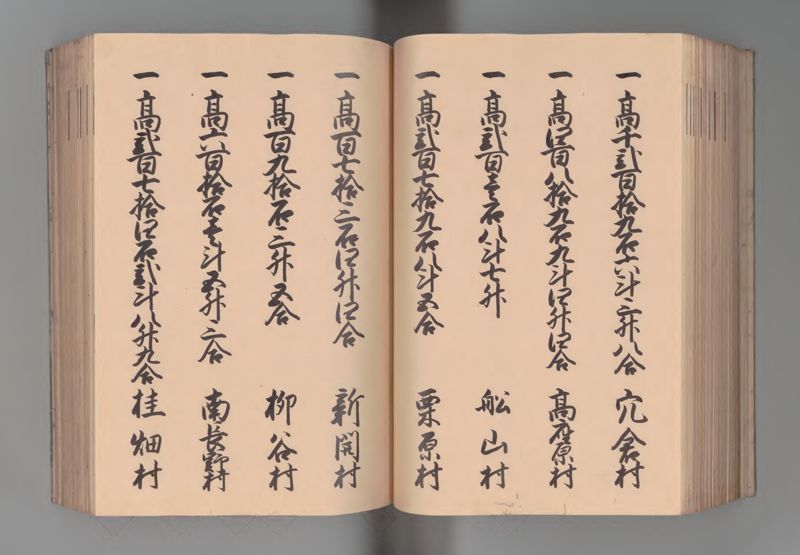 一高千弐百拾九石六斗三升八合 穴倉村
一高四百八拾九石九斗四升四合 高座原村
一高弐百壱石八斗七升 船山村
一高弐百七拾九石八斗五合 栗原村
一高百七拾二石四升四合 新開村
一高百九拾石二升五合 柳谷村
一高六百拾石壱斗五升二合 南長野村
一高弐百七拾四石弐斗八升九合 桂畑村